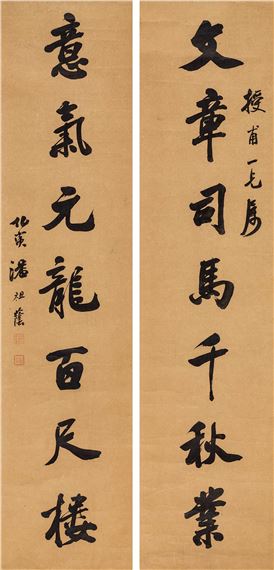 文章司馬千秋業
授甫一兄屬
意氣元龍百尺樓
潘祖蔭